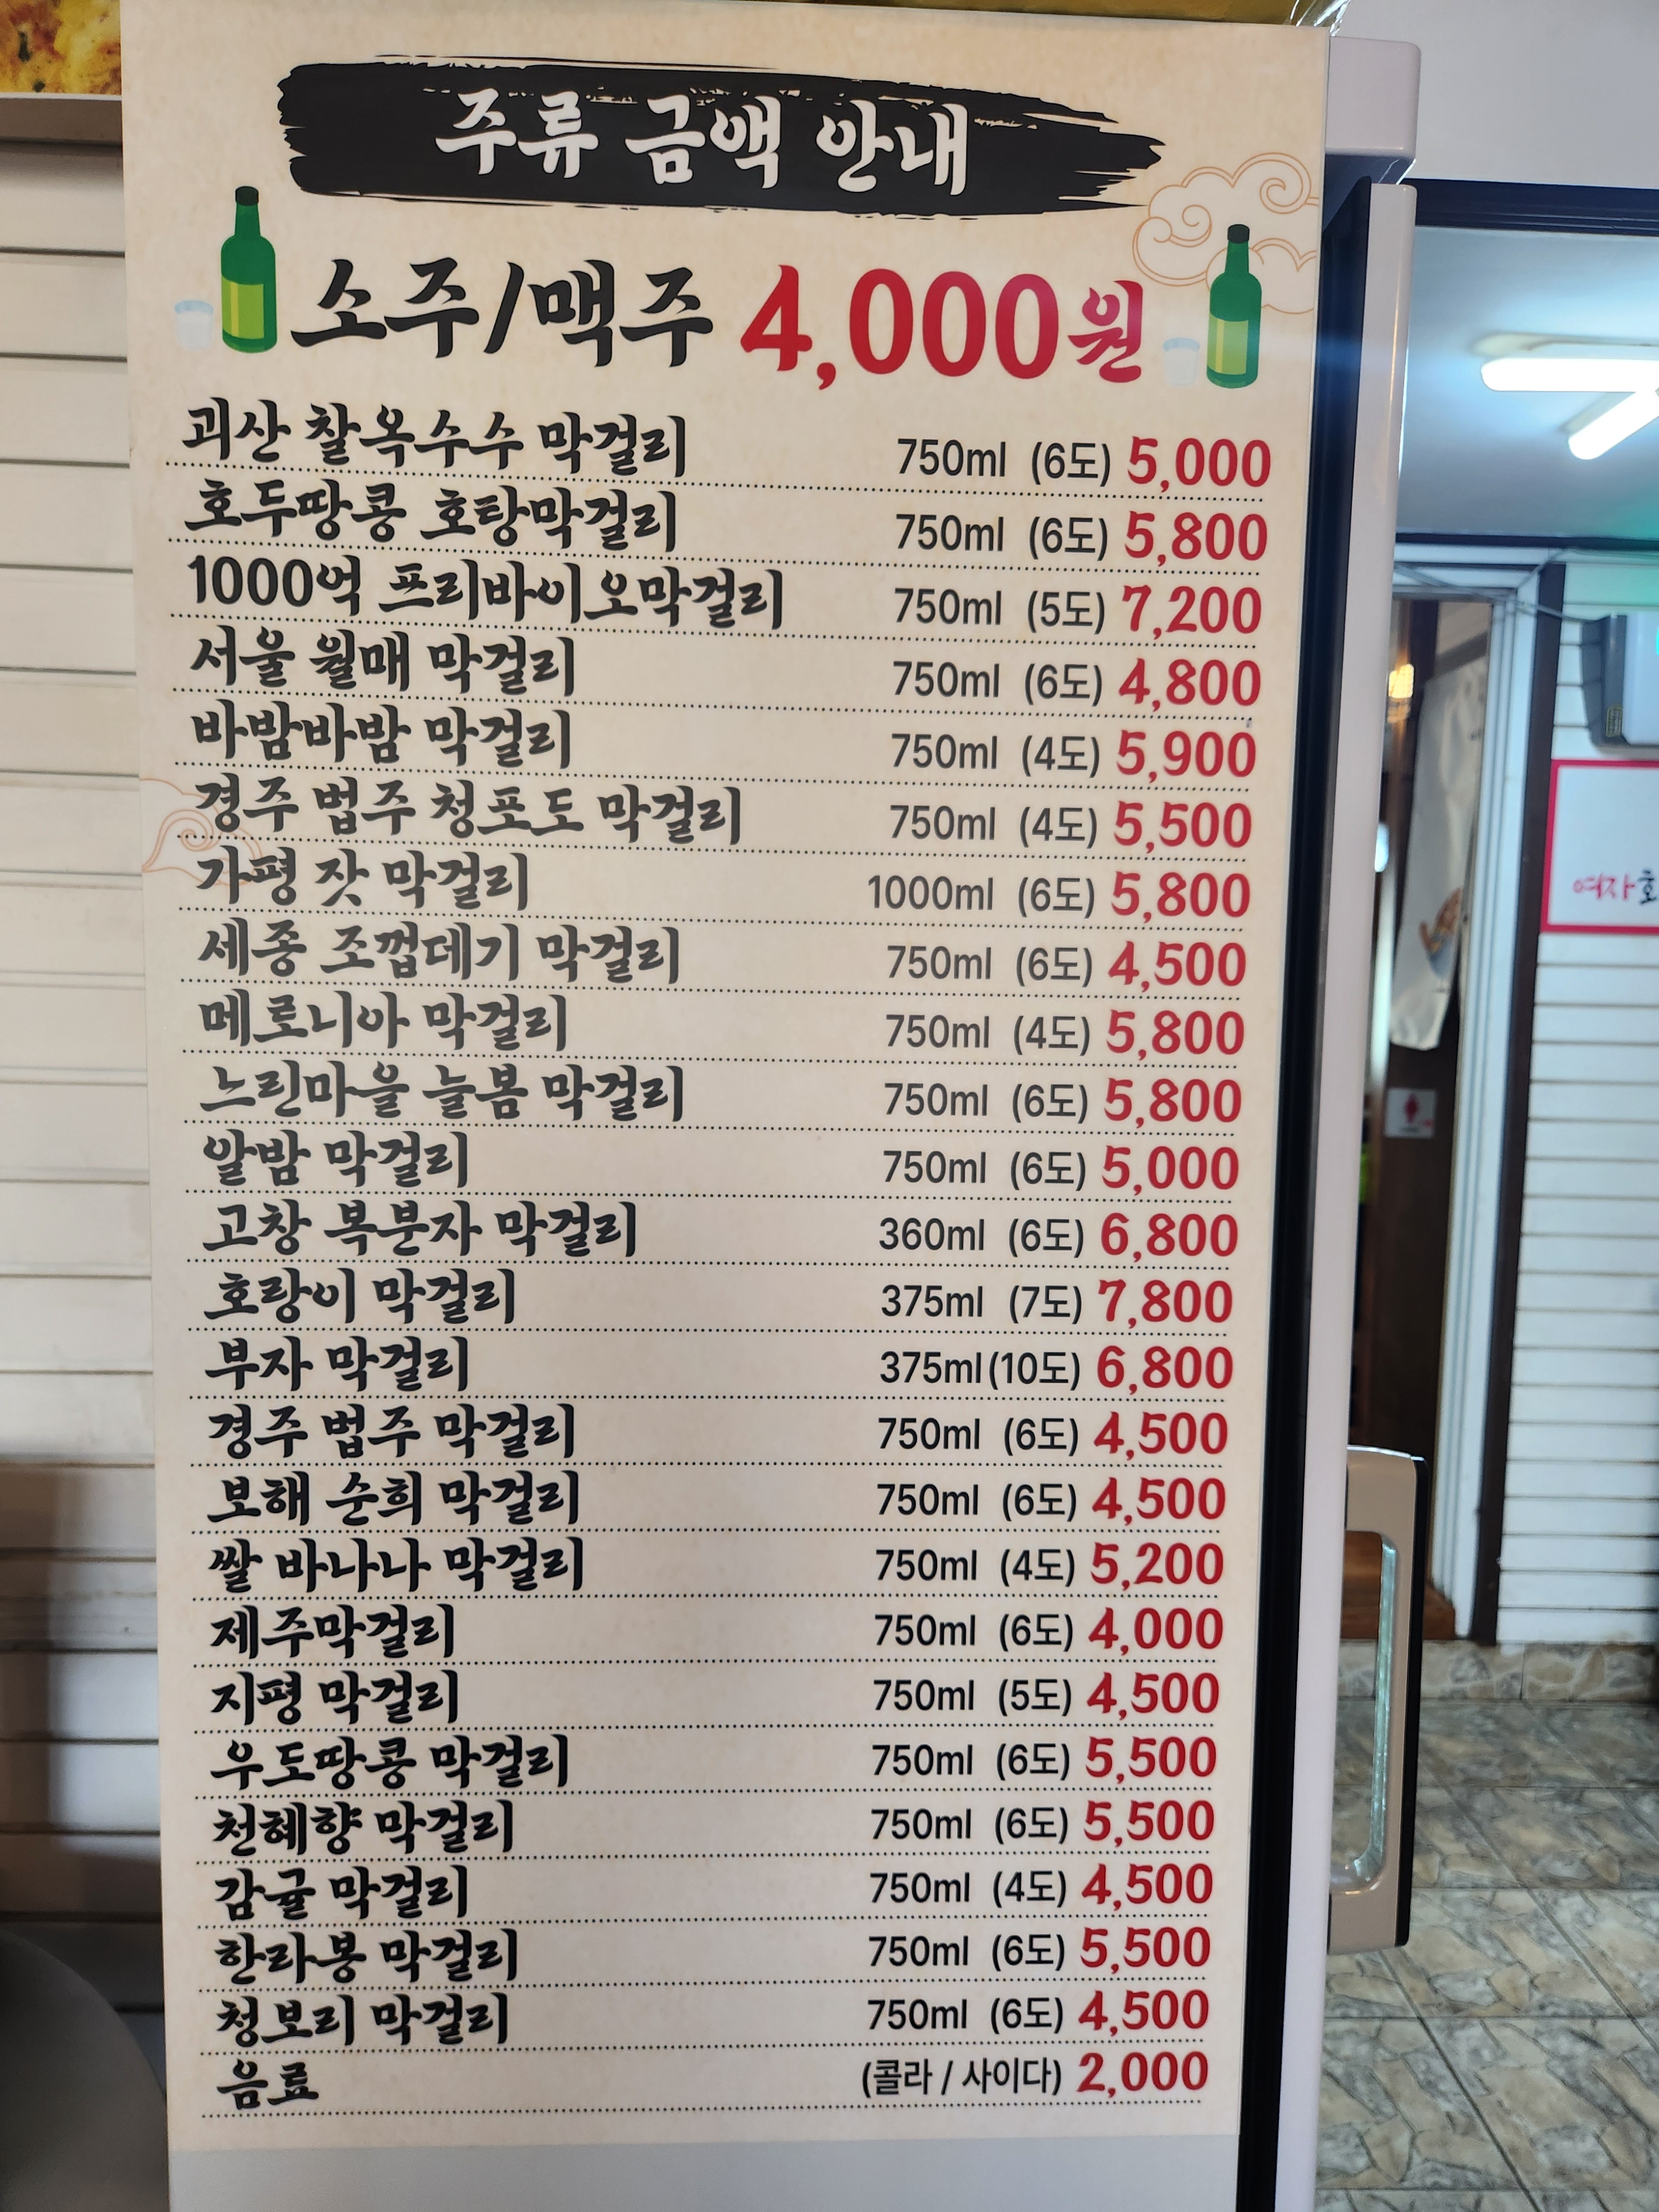 주류 금액 안내
소주/맥주 4,000원
괴산 찰옥수수 막걸리 750ml (6도) 5,000
호두땅콩 호탕막걸리 750ml (6도) 5,800
1000억 프리바이오막걸리 750ml (5도) 7,200
서울 월매 막걸리 750ml (6도) 4,800
바밤바밤 막걸리 750ml (4도) 5,900
경주 법주 청포도 막걸리 750ml (4도) 5,500
가평 잣 막걸리 1000ml (6도) 5,800
세종 조껍데기 막걸리 750ml (6도) 4,500
메로니아 막걸리 750ml (4도) 5,800
느린마을 늘봄 막걸리 750ml (6도) 5,800
알밤 막걸리 750ml (6도) 5,000
고창 복분자 막걸리 360ml (6도) 6,800
호랑이 막걸리 375ml (7도) 7,800
부자 막걸리 375ml (10도) 6,800
경주 법주 막걸리 750ml (6도) 4,500
보해 순희 막걸리 750ml (6도) 4,500
쌀 바나나 막걸리 750ml (4도) 5,200
제주막걸리 750ml (6도) 4,000
지평 막걸리 750ml (5도) 4,500
우도땅콩 막걸리 750ml (6도) 5,500
천혜향 막걸리 750ml (6도) 5,500
감귤 막걸리 750ml (4도) 4,500
한라봉 막걸리 750ml (6도) 5,500
청보리 막걸리 750ml (6도) 4,500
음료 (콜라 / 사이다) 2,000
여자